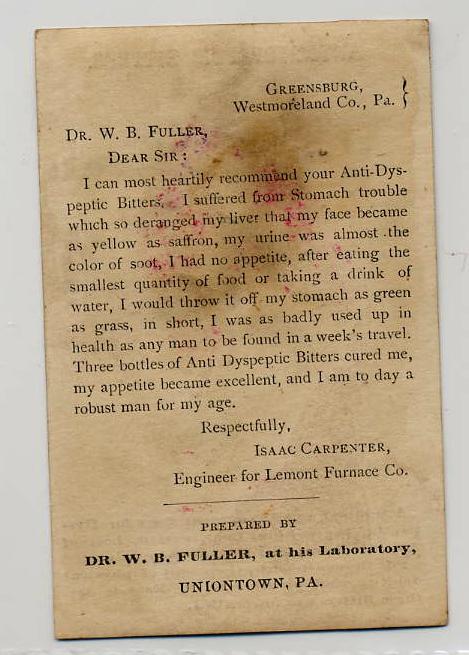 GREENSBURG,
Westmoreland Co., Pa. }
DR. W. B. FULLER,
DEAR SIR:
I can most heartily recommend your Anti-Dys-
peptic Bitters. I suffered from Stomach trouble
which so deranged my liver that my face became
as yellow as saffron, my urine was almost the
color of soot, I had no appetite, after eating the
smallest quantity of food or taking a drink of
water, I would throw it off my stomach as green
as grass, in short, I was as badly used up in
health as any man to be found in a week's travel.
Three bottles of Anti Dyspeptic Bitters cured me,
my appetite became excellent, and I am to day a
robust man for my age.
Respectfully,
ISAAC CARPENTER,
Engineer for Lemont Furnace Co.
PREPARED BY
DR. W. B. FULLER, at his Laboratory,
UNIONTOWN, PA.